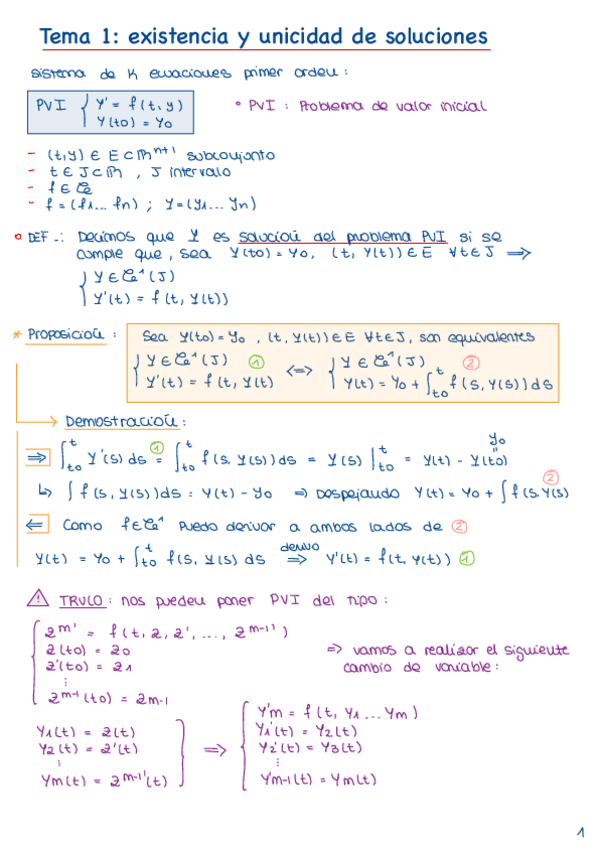 Tema 1: existencia y unicidad de soluciones
sistema de K ecuaciones primer orden:
PVI { y' = f(t,y)
y(to) = yo
• PVI : Problema de valor inicial
- (t,y) ∈ E ⊂ ℝⁿ⁺¹ subconjunto
- t ∈ J ⊂ ℝ , J intervalo
- f ∈ C
- f = (f1... fn) ; y = (y1... yn)
• DEF -: Decimos que y es solución del problema PVI si se
cumple que, sea y(to) = yo, (t, y(t)) ∈ E ∀t ∈ J ⟹
{ y ∈ C¹(J)
y'(t) = f(t, y(t))
* Proposición : Sea y(to) = yo , (t, y(t)) ∈ E ∀t ∈ J, son equivalentes
{ y ∈ C¹(J) ① <=> { y ∈ C¹(J) ②
y'(t) = f(t, y(t) y(t) = yo + ∫_to^t f(s, y(s)) ds
→ Demostración :
⟹ ∫_to^t y'(s) ds ①= ∫_to^t f(s, y(s)) ds = y(s) |_to^t = y(t) - y(to) '' yo
↳ ∫ f(s, y(s)) ds = y(t) - yo ⟹ Despejando y(t) = yo + ∫ f(s, y(s) ②
⟸ Como f ∈ C¹ puedo derivar a ambos lados de ②
y(t) = yo + ∫_to^t f(s, y(s) ds derivo ⟹ y'(t) = f(t, y(t)) ①
⚠ TRUCO : nos pueden poner PVI del tipo :
{ z^m' = f(t, z, z', ..., z^m-1')
z(to) = z0
z'(to) = z1
⋮
z^m-1 (to) = zm-1
⟹ vamos a realizar el siguiente
cambio de variable :
y1(t) = z(t)
y2(t) = z'(t)
⋮
ym(t) = z^m-1'(t)
} ⟹
{ y'm = f(t, y1 ... ym)
y1'(t) = y2(t)
y2'(t) = y3(t)
⋮
y'm-1(t) = ym(t)
1